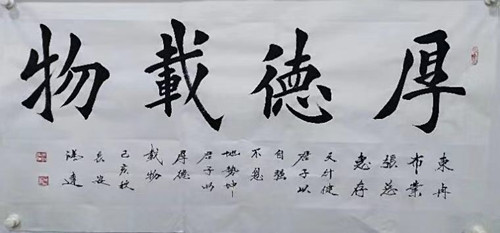 厚德載物
東冉
布業
張总
惠存
天行健
君子以
自強
不息
地勢坤
君子以
厚德
載物
己亥秋
長安